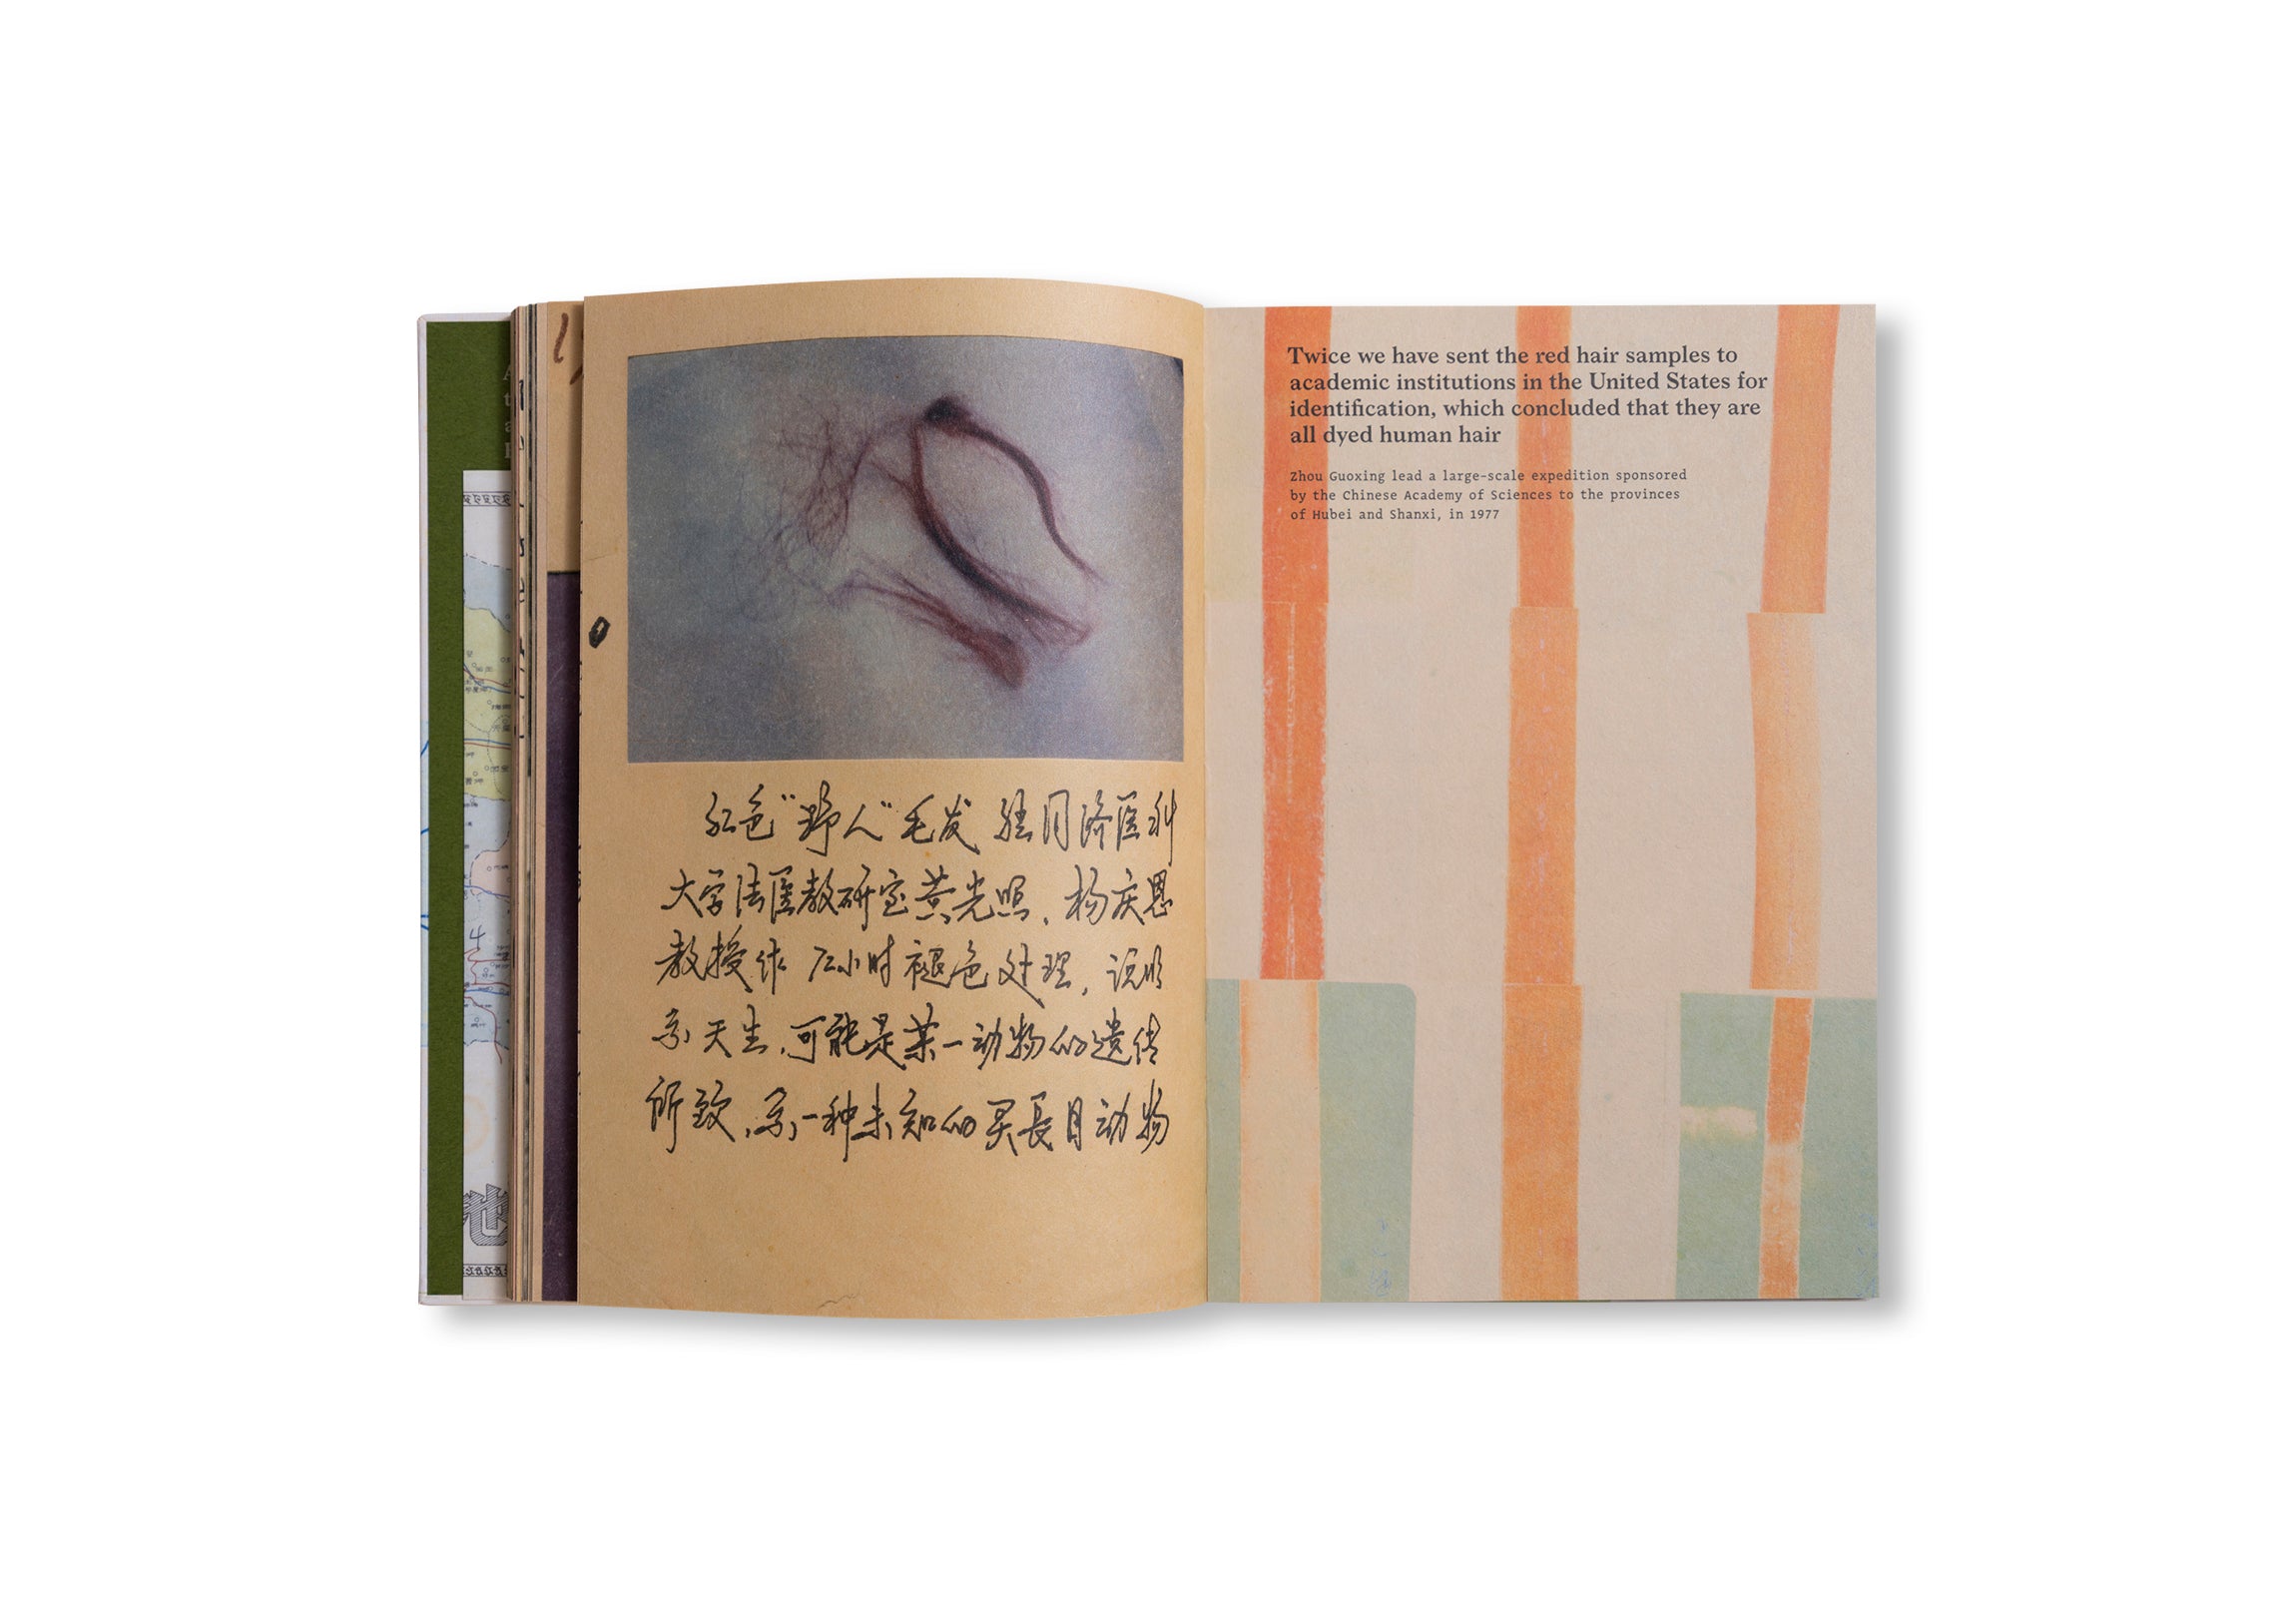 红色"野人"毛发 经同济医科
大学法医教研室黄光照、杨庆恩
教授作 72小时褪色处理，说明
系天生，可能是某一动物的遗传
所致，系一种未知的灵長目动物
Twice we have sent the red hair samples to
academic institutions in the United States for
identification, which concluded that they are
all dyed human hair
Zhou Guoxing lead a large-scale expedition sponsored
by the Chinese Academy of Sciences to the provinces
of Hubei and Shanxi, in 1977